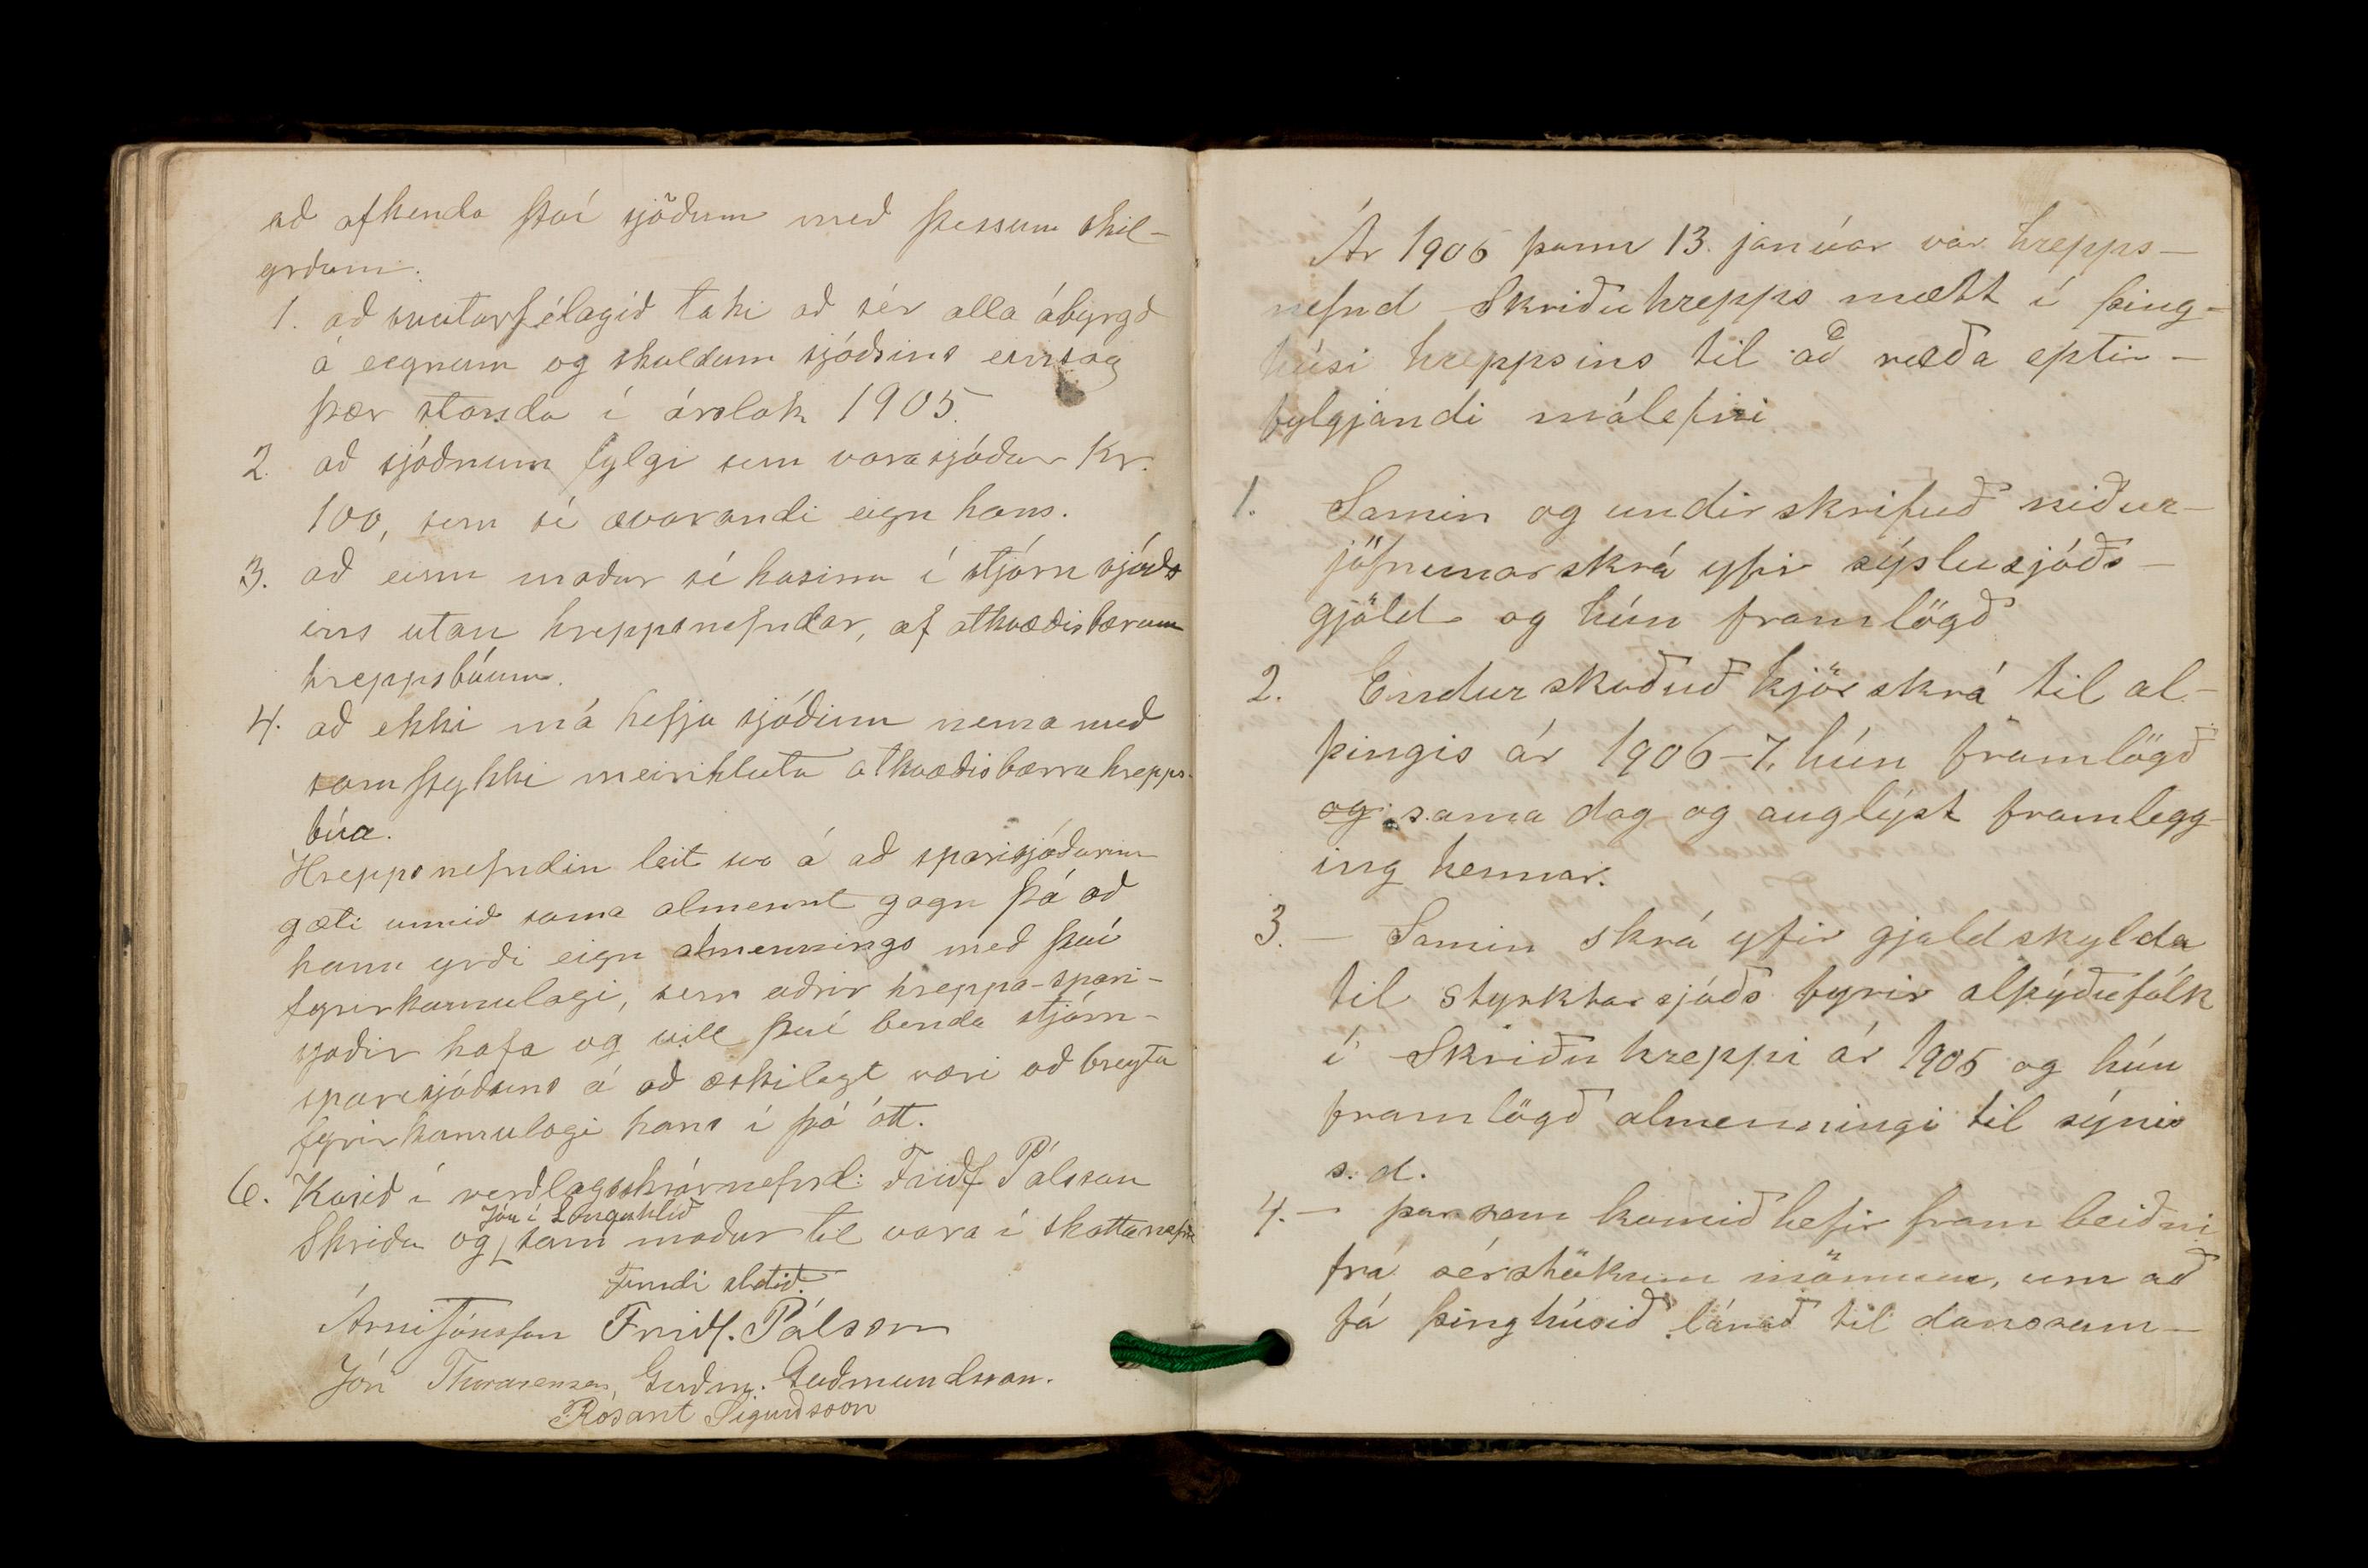 að afhenda því sjóðum með þessum skil-
yrðum.
1. að sveitarfélagið taki að sér alla ábyrgð
á eignum og skuldum sjóðsins einsog
þær standa í árslok 1905.
2. að sjóðnum fylgi sem varasjóður Kr.
100, sem sé ævarandi eign hans.
3. að einn maður sé kosinn í stjórn sjóðs
ins utan hreppsnefndar, af atkvæðisbærum
hreppsbúum.
4. að ekki má hefja sjóðinn nema með
samþykki meirihluta atkvæðisbærra hrepps-
búa.
Hreppsnefndin leit svo á að sparisjóðurinn
gæti unnið sama almennt gagn þó að
hann yrði eign almennings með því
fyrirkomulagi, sem aðrir hreppa-spari-
sjóðir hafa og vill því benda stjórn-
sparisjóðsins á að æskilegt væri að breyta
fyrirkomulagi hans í þá átt.
6. Kosið í verðlagsskrárnefnd: Friðf Pálsson
Jón í Lönguhlíð
Skriðu og sami maður til vara í skattanefn
Fundi slitið.
Árni Jónsson Friðf. Pálsson
Jón Thorarensen, Guðm. Guðmundsson.
Rósant Sigurðsson
Ár 1906 þann 13. janúar var hrepps-
nefnd Skriðuhrepps mætt í þing-
húsi hreppsins til að ræða eptir-
fylgjandi málefni
1. Samin og undirskrifuð niður-
jöfnunarskrá yfir sýslusjóðs-
gjöld og hún framlögð
2. Endurskoðuð kjörskrá til al-
þingis ár 1906-7, hún framlögð
og sama dag og auglýst framlegg-
ing hennar.
3. - Samin skrá yfir gjaldskylda
til styrktarsjóðs fyrir alþýðufólk
í Skriðuhreppi ár 1905 og hún
framlögð almenningi til sýnis
s. d.
4. - þar sem komið hefir fram beiðni
frá sérstökum mönnum, um að
fá þinghúsið lánað til danssam-